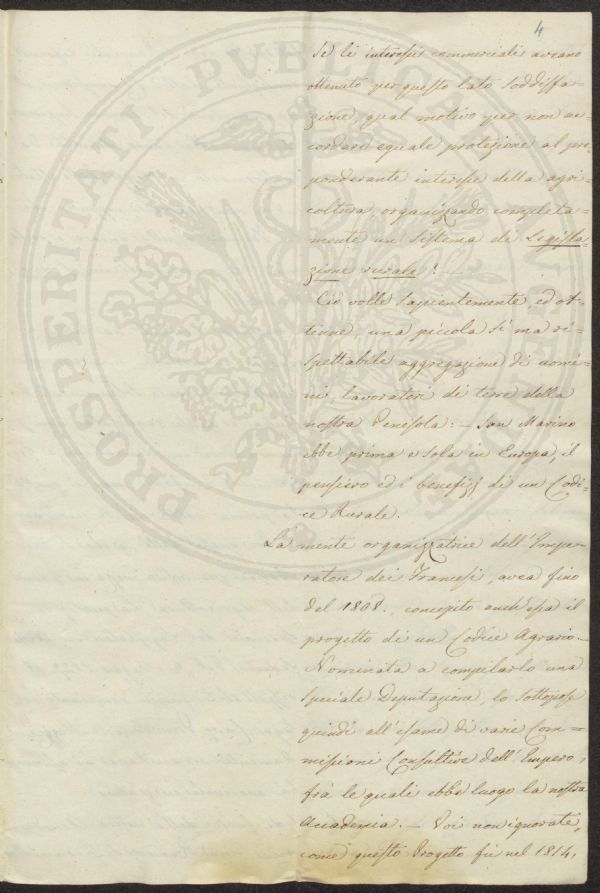 4
Se li interessi commerciali aveano
ottenuto per questo lato soddisfa-
zione, qual motivo per non ac-
cordare eguale protezione al pre-
ponderante interesse della agri-
coltura, organizzando completa-
mente un sistema di Legisla-
zione rurale! —
Ciò volle sapientemente ed ot-
tenne, una piccola sì ma ri-
spettabile aggregazione di uomi-
ni, lavoratori di terre della
nostra Penisola: — San Marino
ebbe prima e sola in Europa, il
pensiero ed i benefizj di un Codi-
ce Rurale.
La mente organizzatrice dell'Impe-
ratore dei Francesi, avea fino
del 1808., concepito anch'essa il
progetto di un Codice Agrario.—
Nominata a compilarlo una
speciale Deputazione, lo sottopose
quindi all'esame di varie Com-
missioni Consultive dell'Impero,
frà le quali ebbe luogo la nostra
Accademia. — Voi non ignorate,
come questo Progetto fù nel 1814,
PROSPERITATI PUBLICAE AUGENDAE